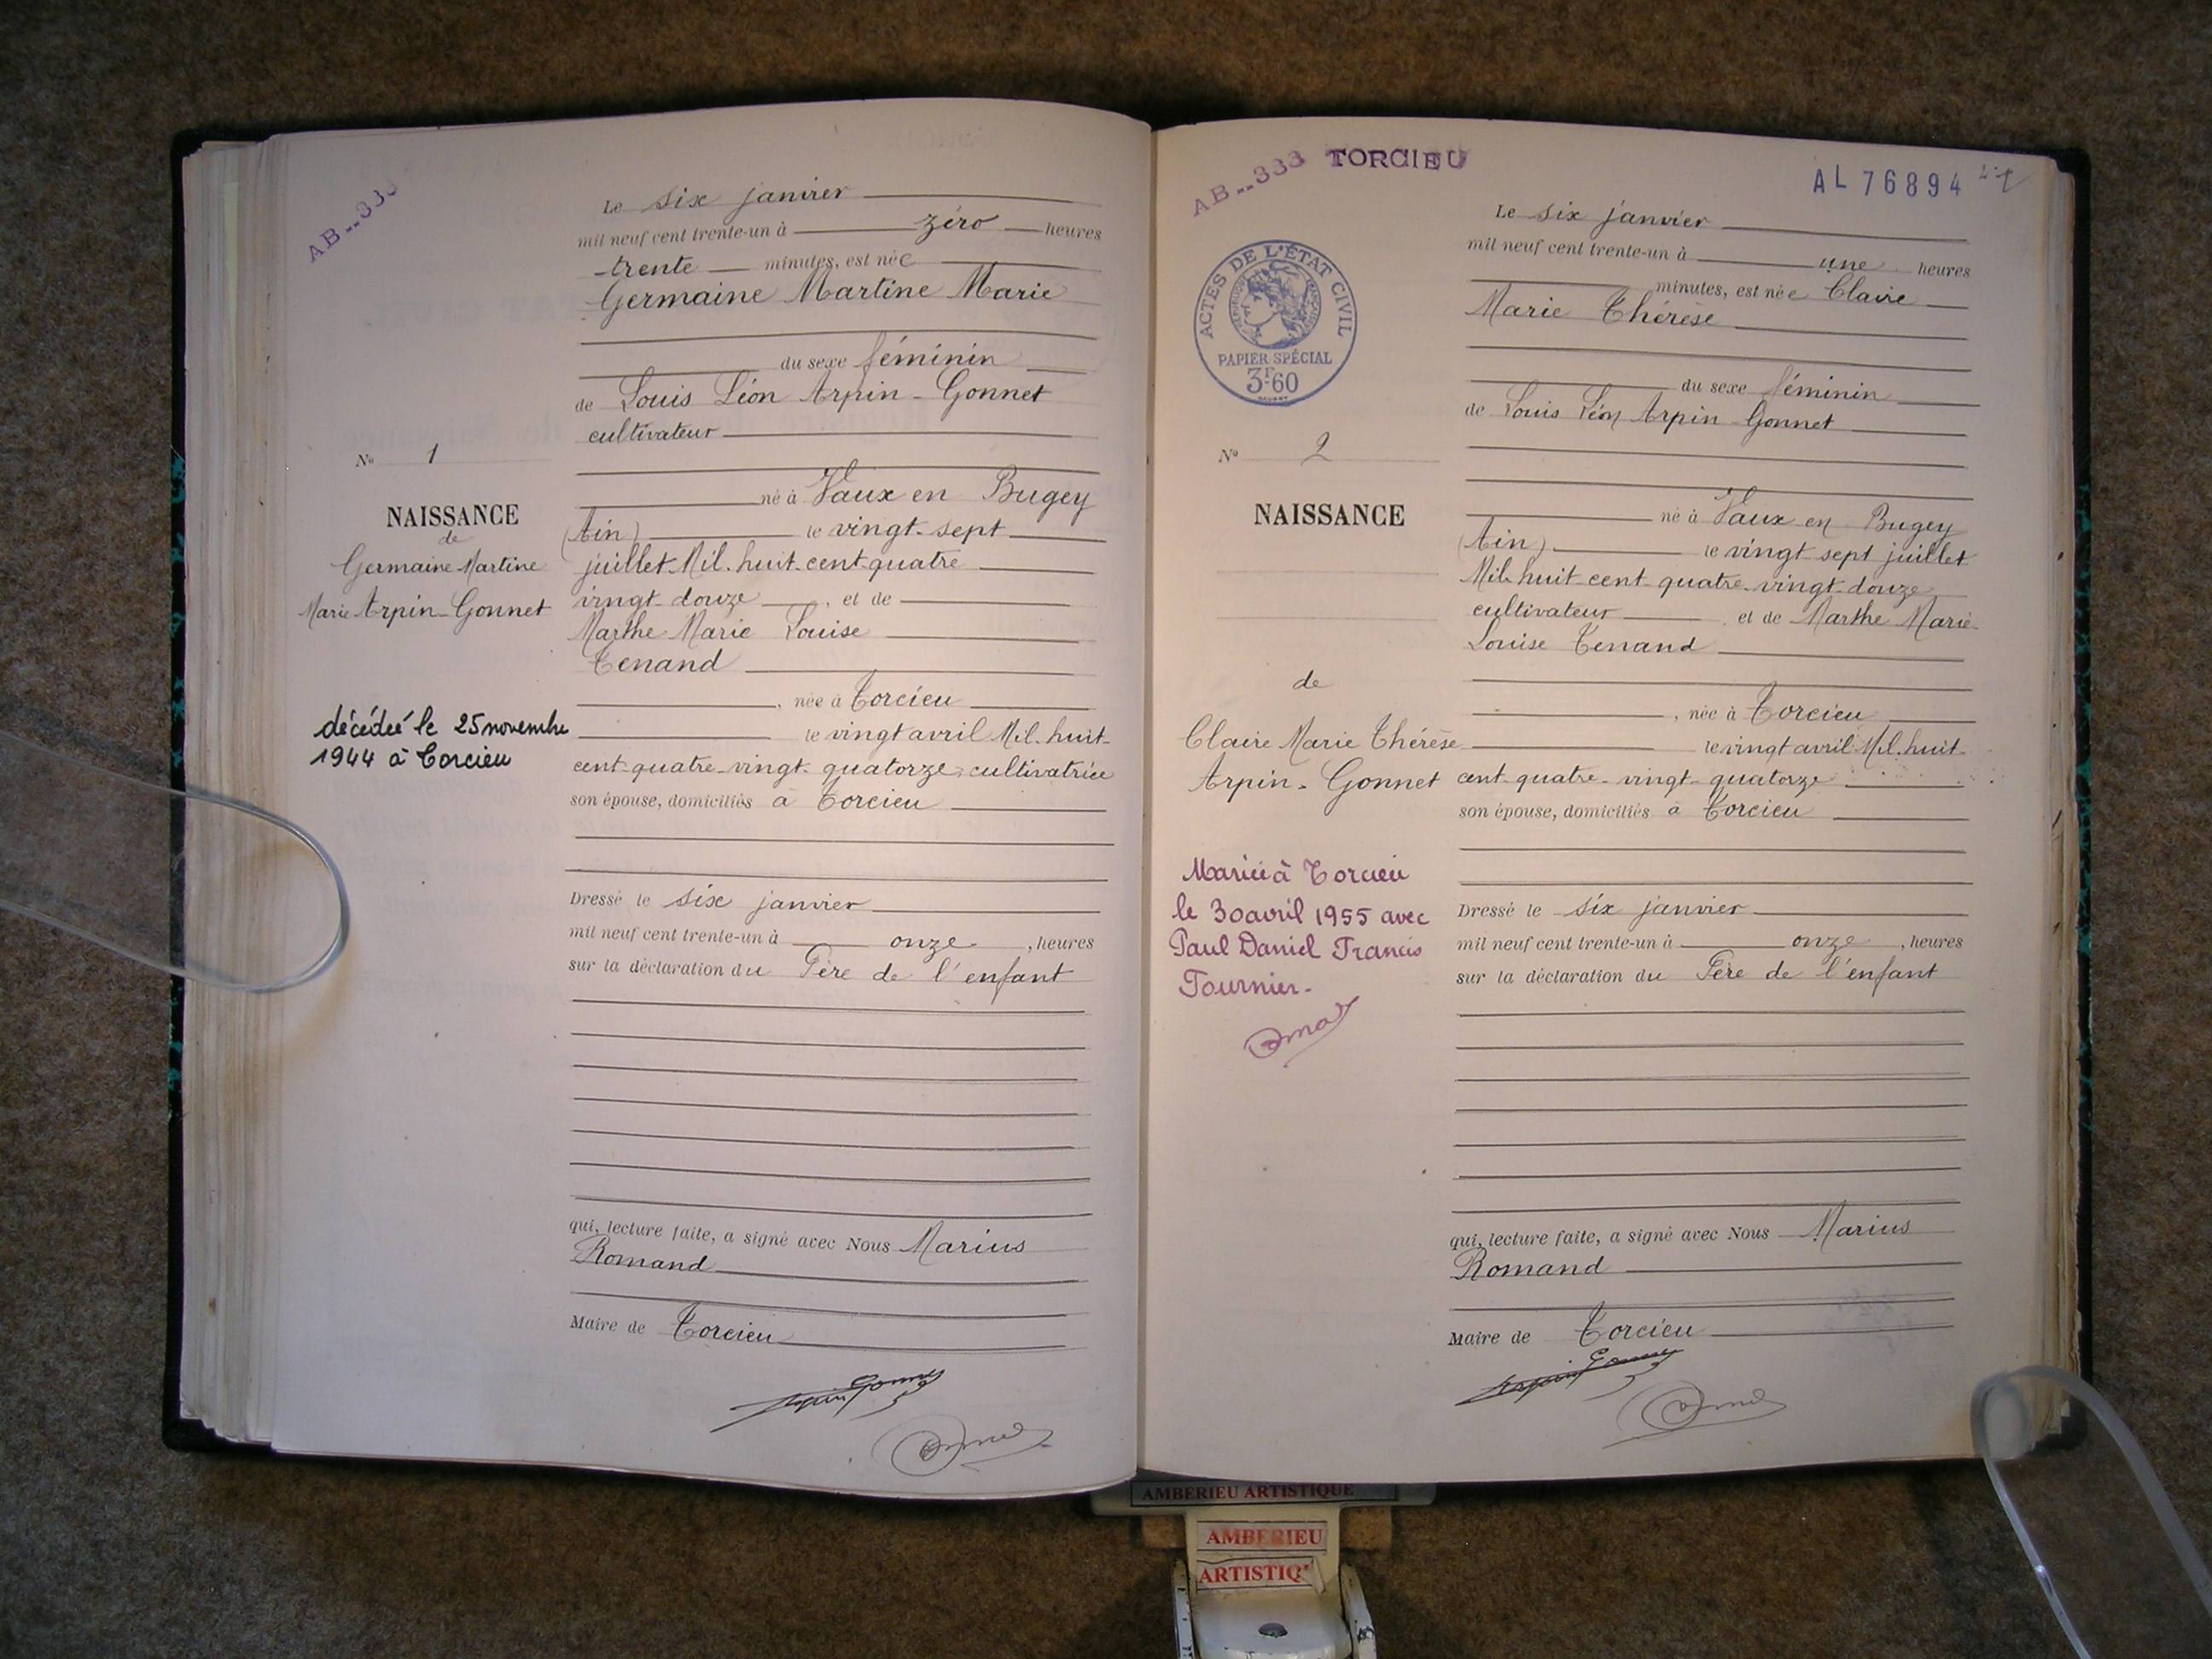 AB--333
Le six janvier
mil neuf cent trente-un à zéro heures
trente minutes, est née
Germaine Martine Marie
du sexe féminin
de Louis Léon Arpin-Gonnet
cultivateur
né à Vaux en Bugey
(Ain) le vingt-sept
juillet Mil-huit-cent-quatre
vingt-douze, et de
Marthe Marie Louise
Tenand
, née à Torcieu
le vingt avril Mil-huit-
cent-quatre-vingt-quatorze, cultivatrice
son épouse, domiciliés à Torcieu
Dressé le six janvier
mil neuf cent trente-un à onze, heures
sur la déclaration du Père de l'enfant
qui, lecture faite, a signé avec Nous Marius
Romand
Maire de Torcieu
No 1
NAISSANCE
de
Germaine Martine
Marie Arpin-Gonnet
décédée le 25 novembre
1944 à Torcieu
AB--333 TORCIEU
AL 76894
ACTES DE L'ÉTAT CIVIL
RÉPUBLIQUE FRANÇAISE
PAPIER SPÉCIAL
3F.60
No 2
NAISSANCE
de
Claire Marie Thérèse
Arpin-Gonnet
Mariée à Torcieu
le 30 avril 1955 avec
Paul Daniel Francis
Tournier-
Le six janvier
mil neuf cent trente-un à une heures
minutes, est née Claire
Marie Thérèse
du sexe féminin
de Louis Léon Arpin-Gonnet
né à Vaux en Bugey
(Ain) le vingt sept juillet
Mil-huit cent-quatre-vingt-douze
cultivateur, et de Marthe Marie
Louise Tenand
, née à Torcieu
le vingt avril Mil-huit-
cent-quatre-vingt-quatorze
son épouse, domiciliés à Torcieu
Dressé le six janvier
mil neuf cent trente-un à onze, heures
sur la déclaration du Père de l'enfant
qui, lecture faite, a signé avec Nous Marius
Romand
Maire de Torcieu
AMBERIEU ARTISTIQUE
AMBERIEU